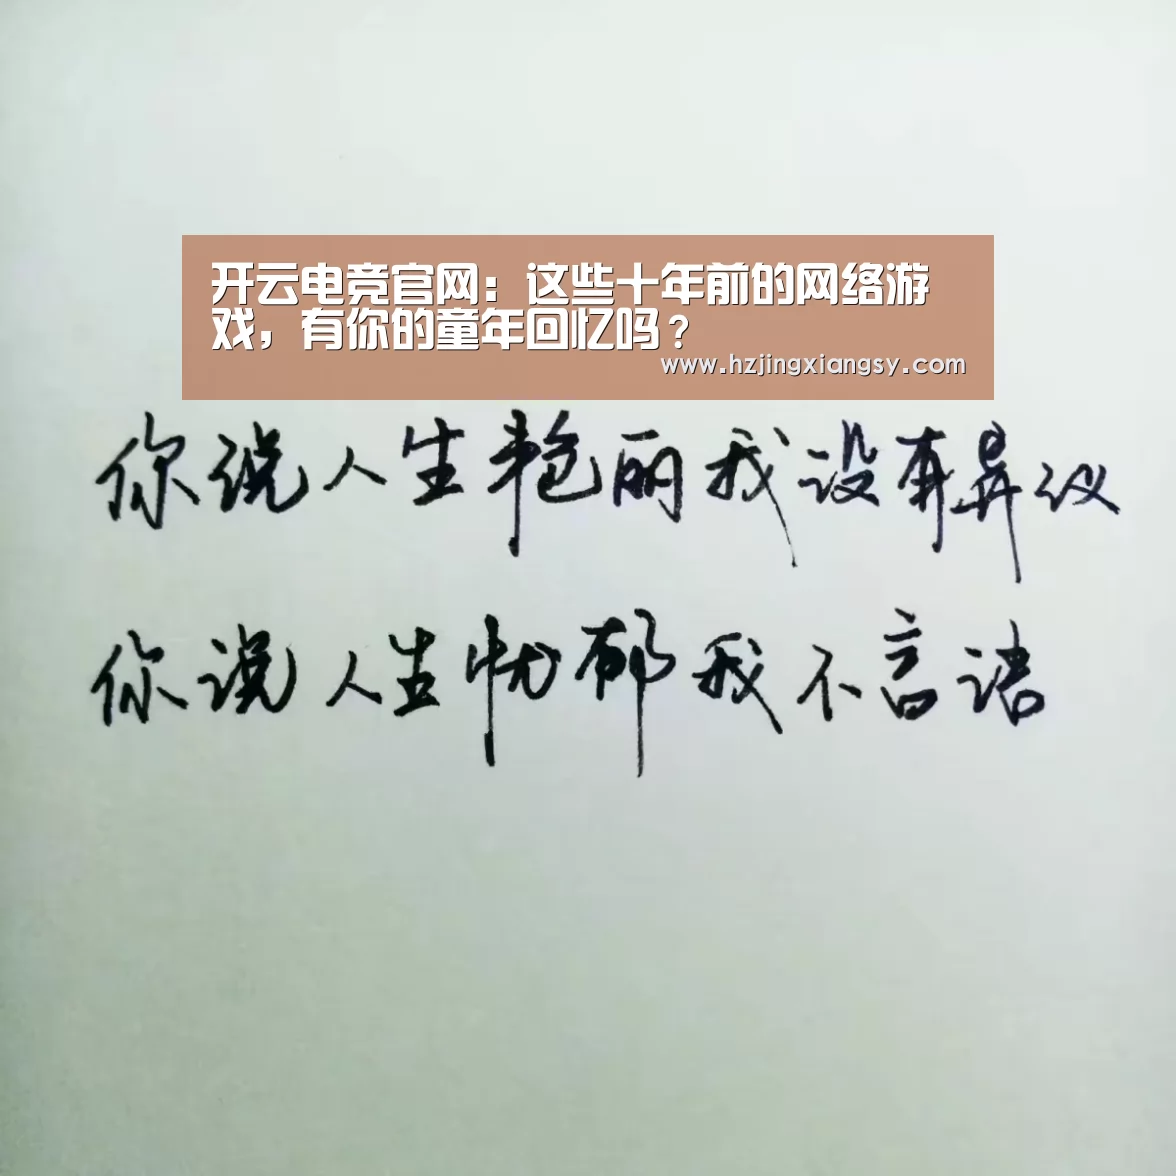 开云电竞官网：这些十年前的网络游
戏，有你的童年回忆吗？
www.hzjingxiangsy.com
你说人生艳丽我没有异议
你说人生忧郁我不言语